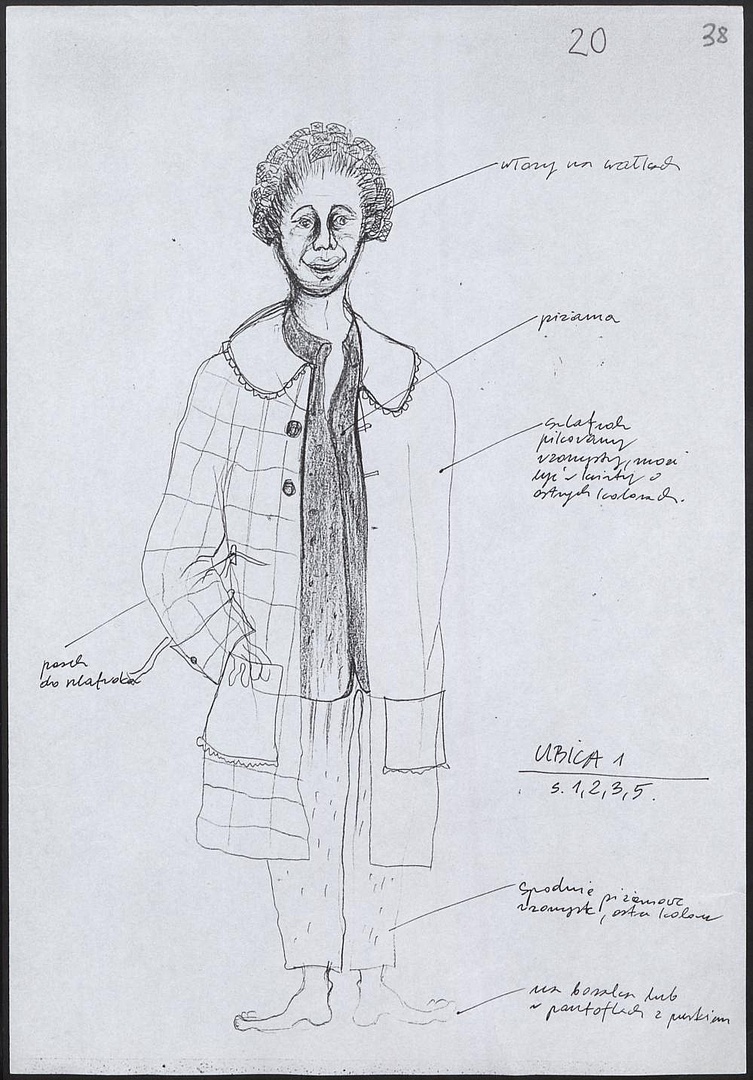 20
38
włosy na wałkach
piżama
szlafrok
pikowany
wzorzysty, może
być w kwiaty o
ostrych kolorach.
pasek
do szlafroka
UBICA 1
s. 1,2,3,5.
spodnie piżamowe
wzorzyste, ostre kolory
na bosaka lub
w pantoflach z puszkiem